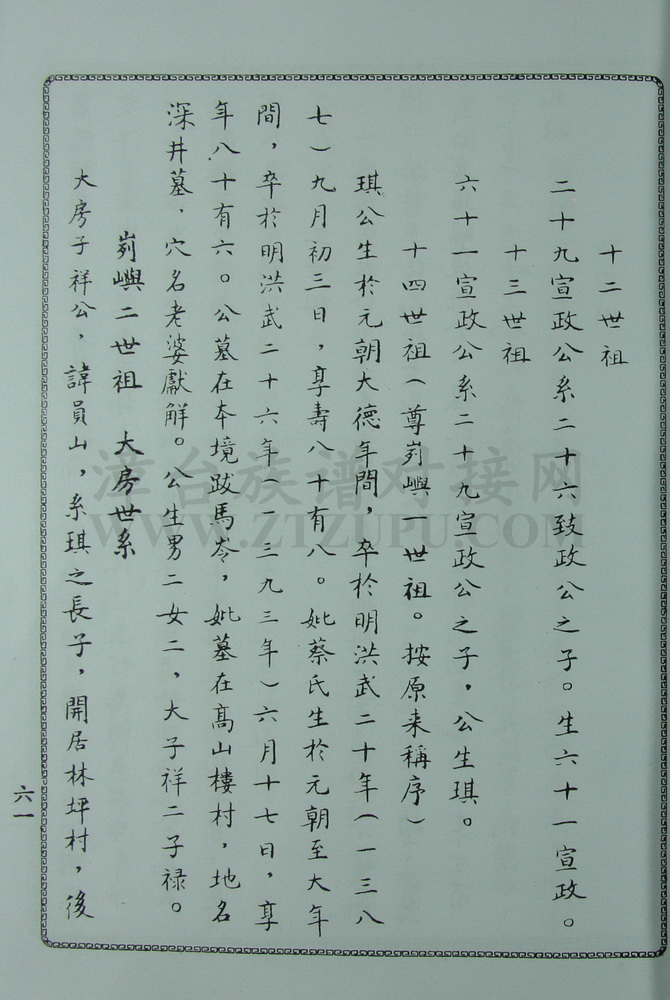 十二世祖
二十九宣政公系二十六致政公之子。生六十一宣政。
十三世祖
六十一宣政公系二十九宣政公之子，公生琪。
十四世祖（尊峛嶼一世祖。按原来稱序）
琪公生於元朝大德年間，卒於明洪武二十年（一三八
七）九月初三日，享壽八十有八。妣蔡氏生於元朝至大年
間，卒於明洪武二十六年（一三九三年）六月十七日，享
年八十有六。公墓在本境跋馬岺，妣墓在髙山樓村，地名
深井墓，穴名老婆獻觧。公生男二女二，大子祥二子禄。
峛嶼二世祖 大房世系
大房子祥公，諱員山，系琪之長子，開居林坪村，後
六一
漳台族谱对接网
WWW.ZTZUPU.COM